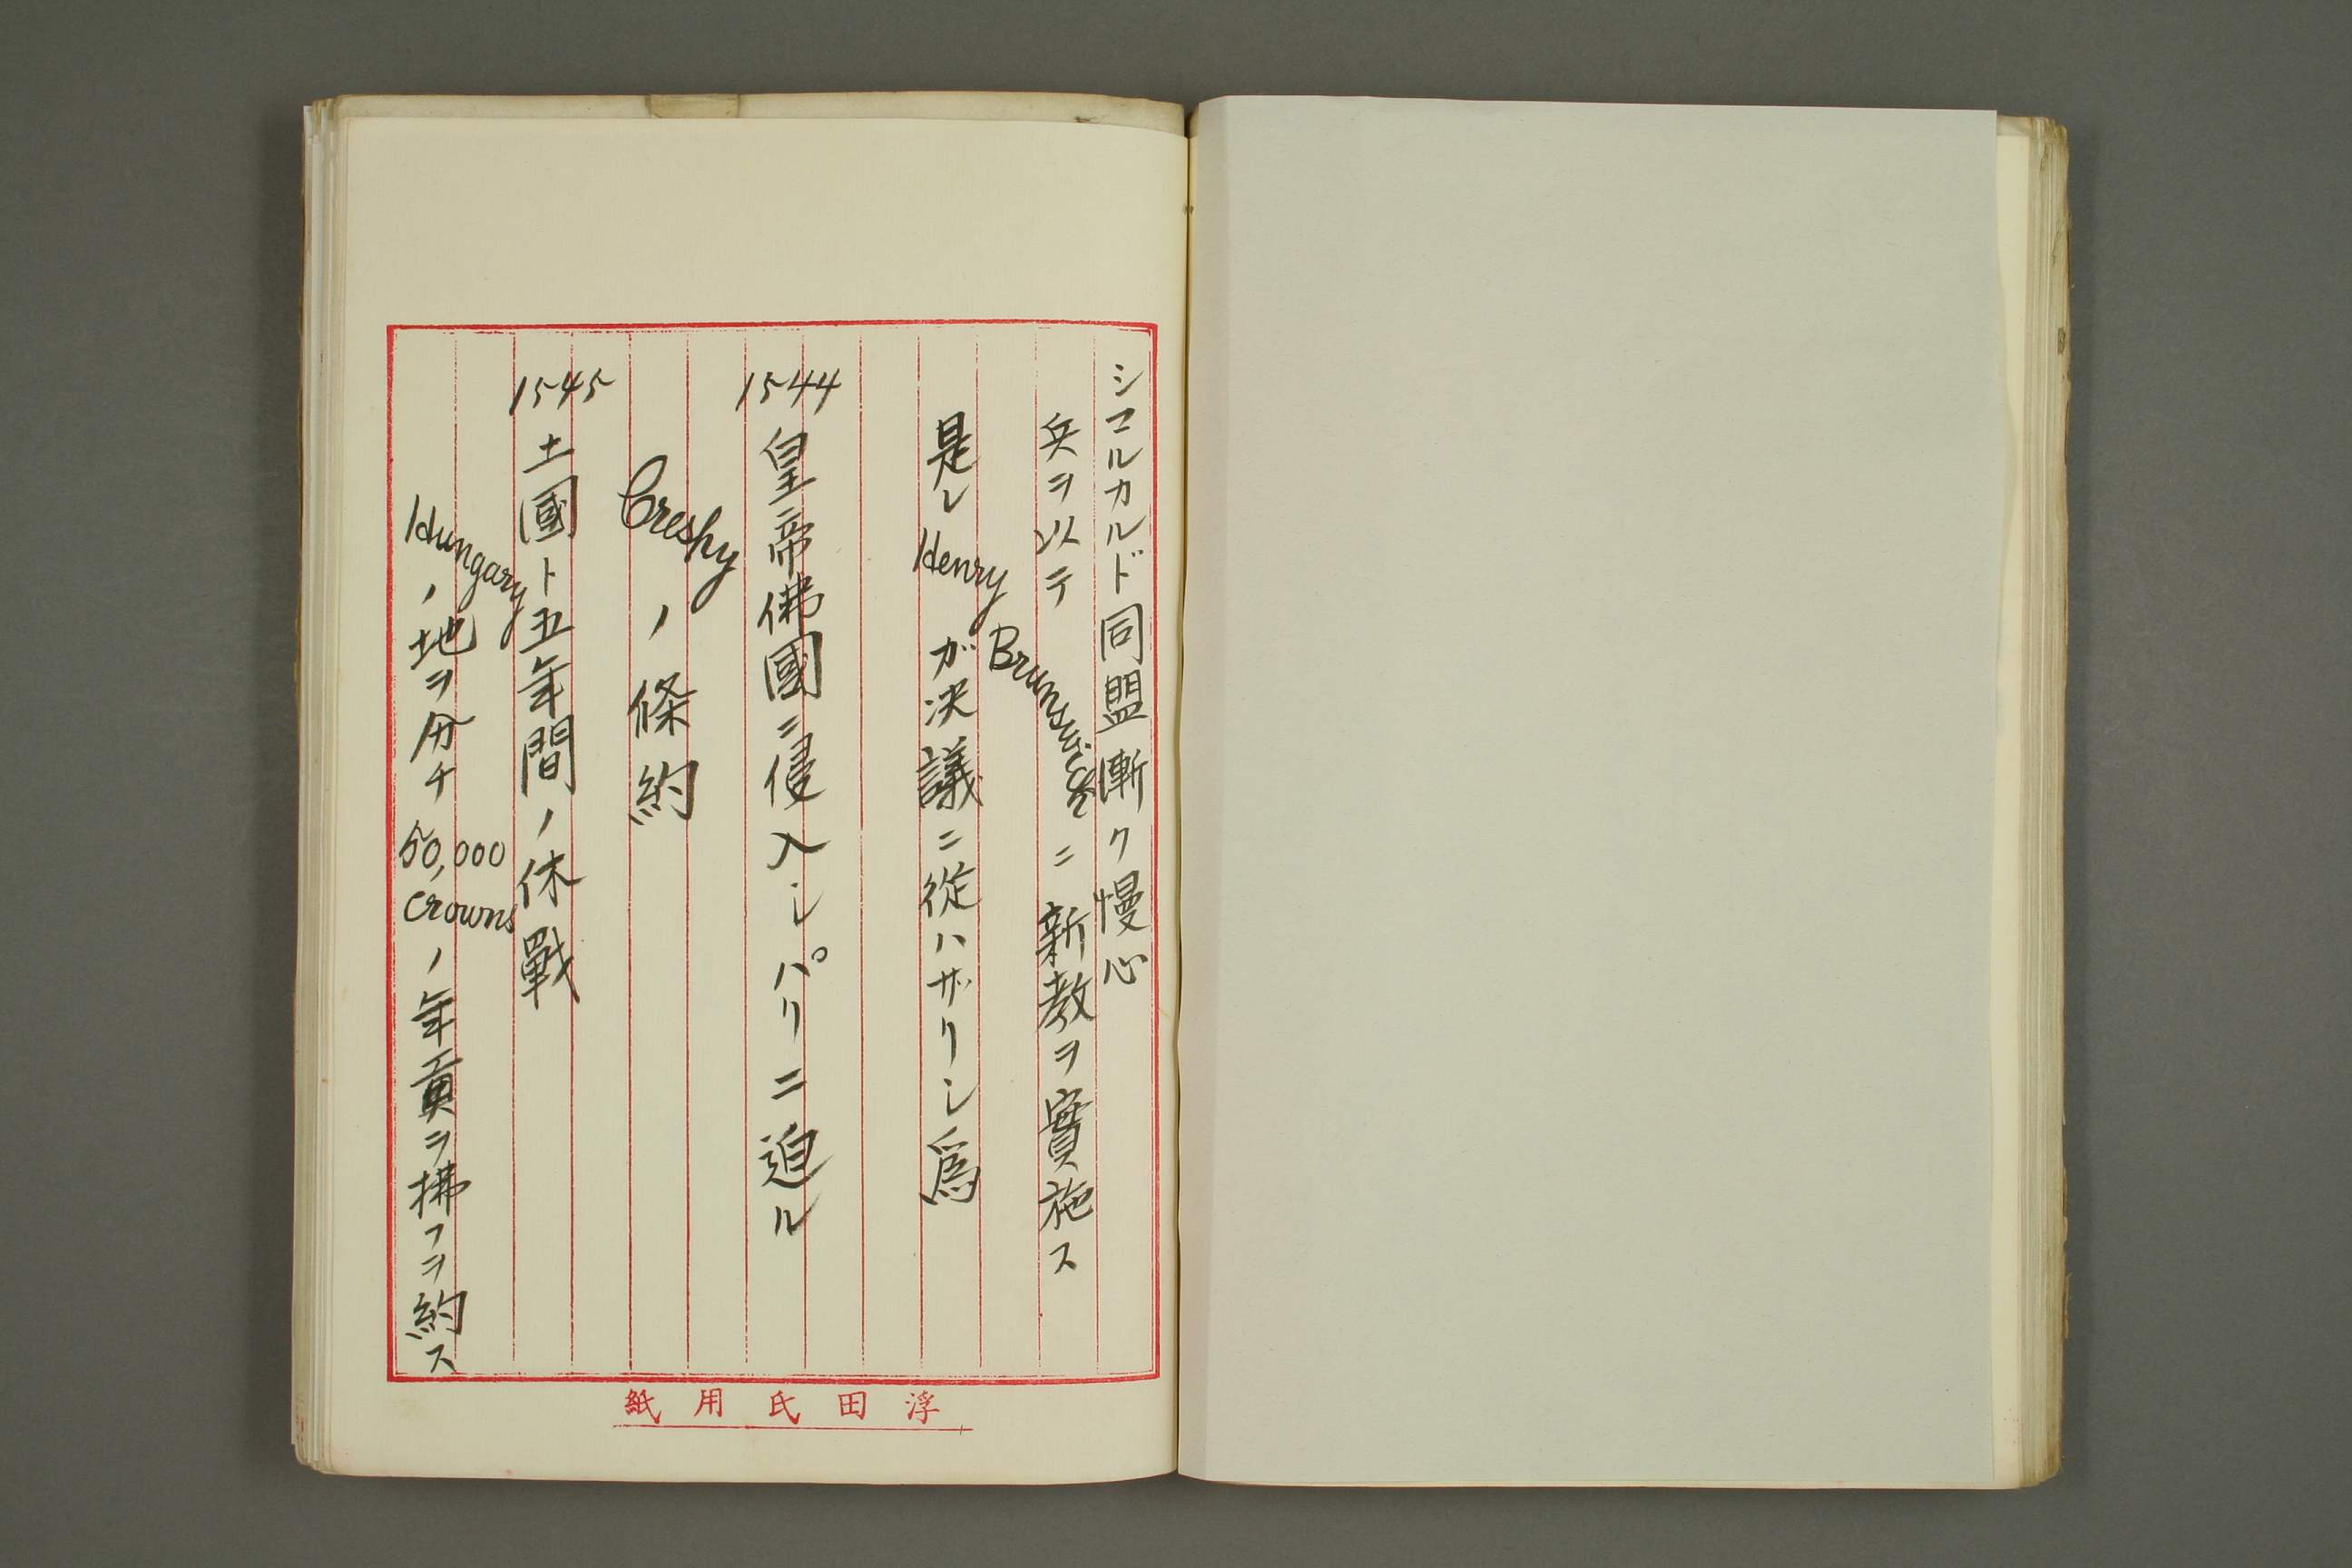 シマルカルド同盟漸ク慢心
兵ヲ以テ Brunswick ニ新教ヲ實施ス
是レ Henry ガ決議ニ從ハザリシ爲
1544 皇帝佛國ニ侵入シパリニ迫ル
Creshy ノ條約
1545 土國ト五年間ノ休戰
Hungary ノ地ヲ分チ 50,000 crowns ノ年貢ヲ拂フヲ約ス
浮田氏用紙